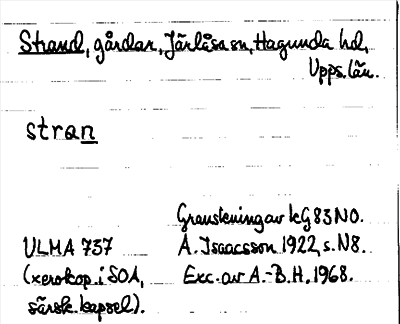 Strand, gårdar, Järlåsa sn, Hagunda hd,
Upps. län.
stran
Granskning av kG 83 NO.
ULMA 737 A. Isaacsson 1922, s. N8.
(xerokop. i SOA, Exc. av A.-B. H. 1968.
särsk. kapsel).